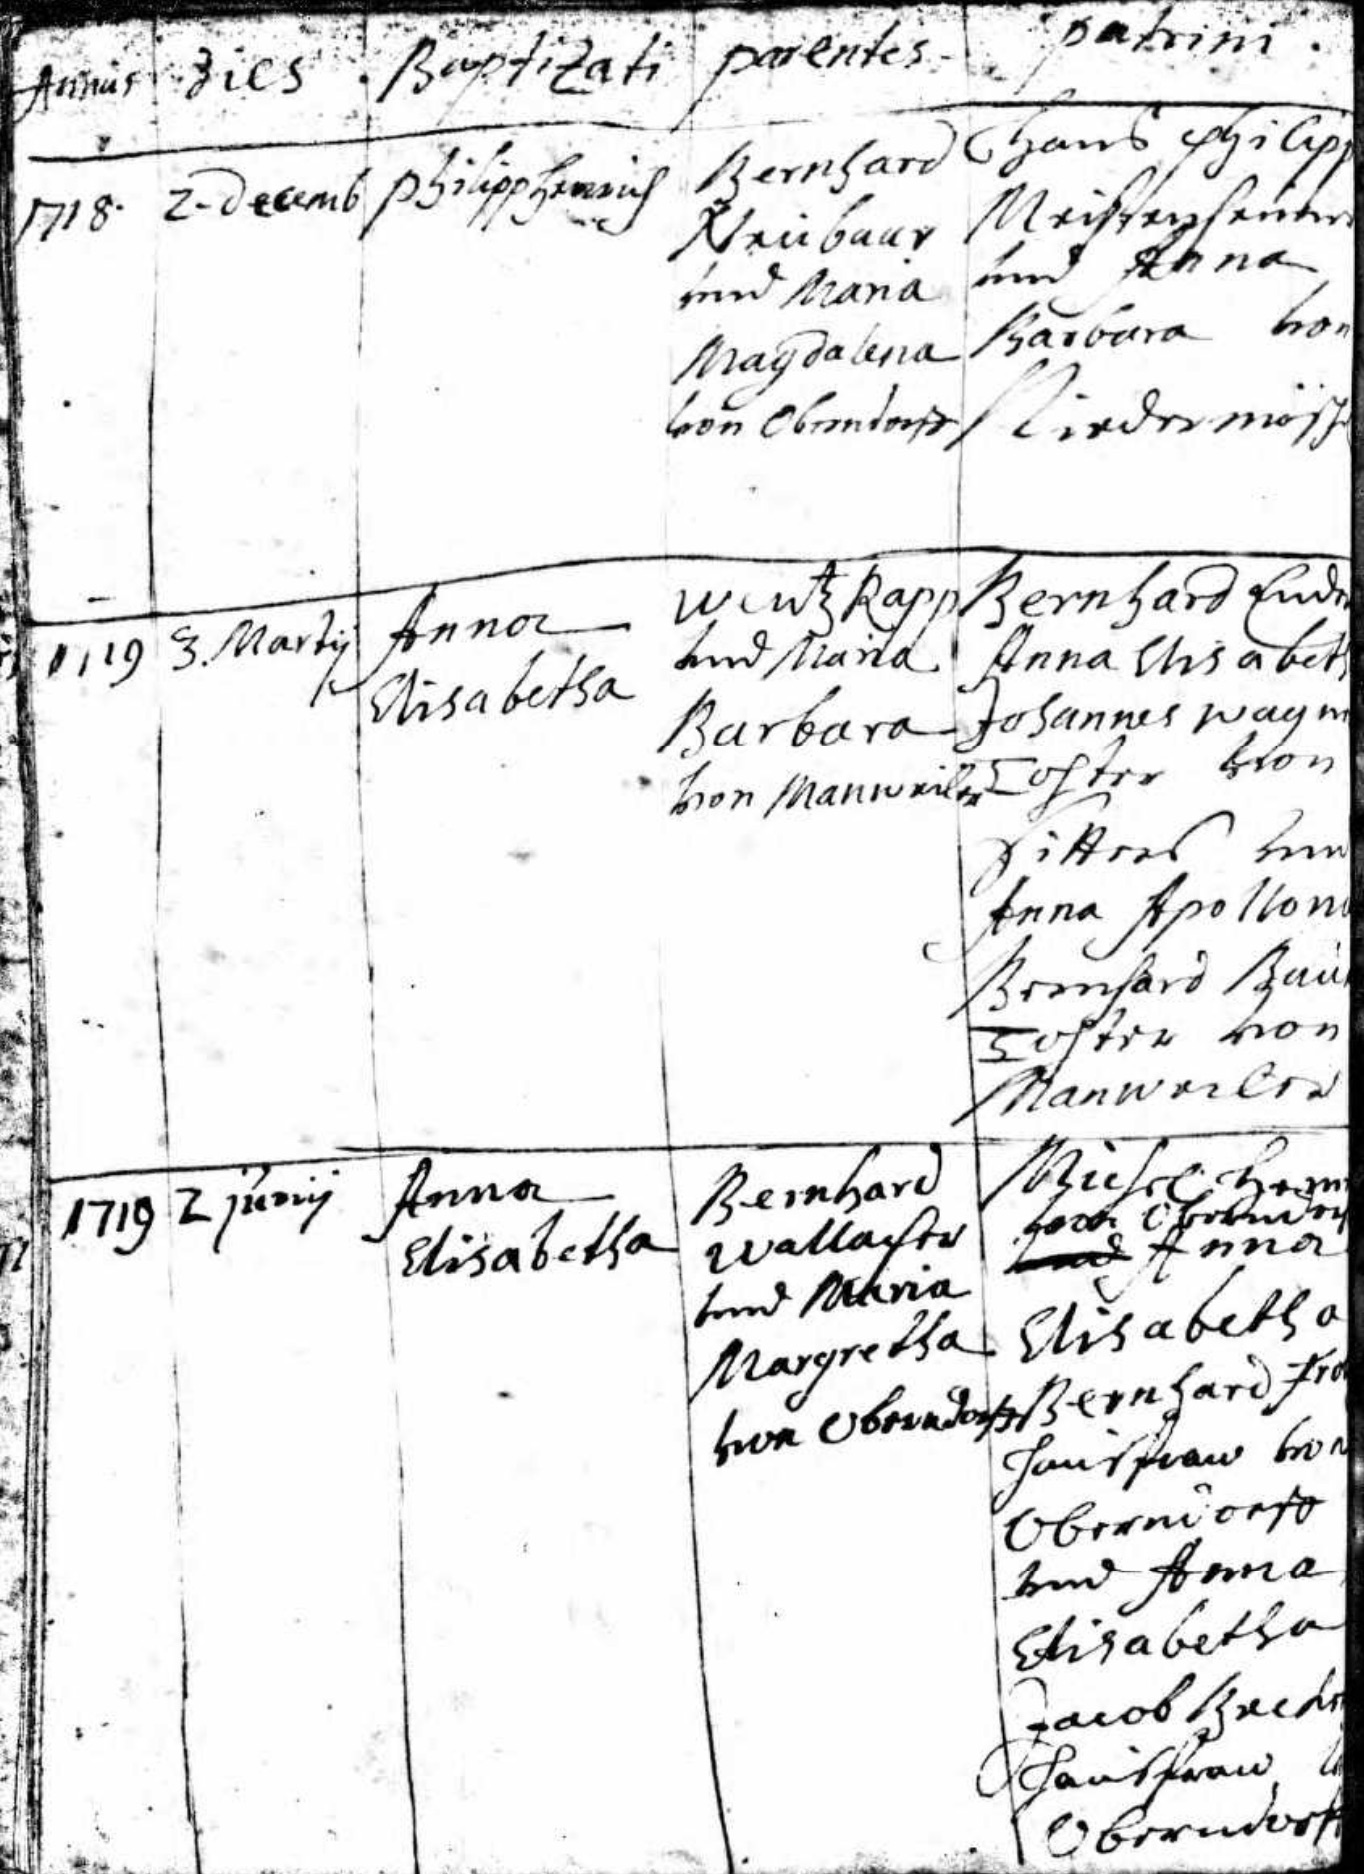 Annus dies Baptizati parentes patrini
1718. 2. decemb philipp henrich Bernhard
Neubaur
und Maria
Magdalena
von Oberndorff
Hans Philipp
und Anna
Barbara von
Niedermösch
1719 3. Martij Anna
Elisabetha
Wentz Rapp
und Maria
Barbara
von Manweiler
Bernhard
Anna Elisabeth
Johannes Wagn
Tochter von
Sitters
Anna Apolloni
Bernhard Bau
Tochter von
Manweiler
1719 2 junij Anna
Elisabetha
Bernhard
Wallacher
und Maria
Margretha
von Oberndorff
Michel
von Oberndorf
Anna
Elisabetha
Bernhard
Hausfrau von
Oberndorff
und Anna
Elisabetha
Jacob
Hausfrau
Oberndorff